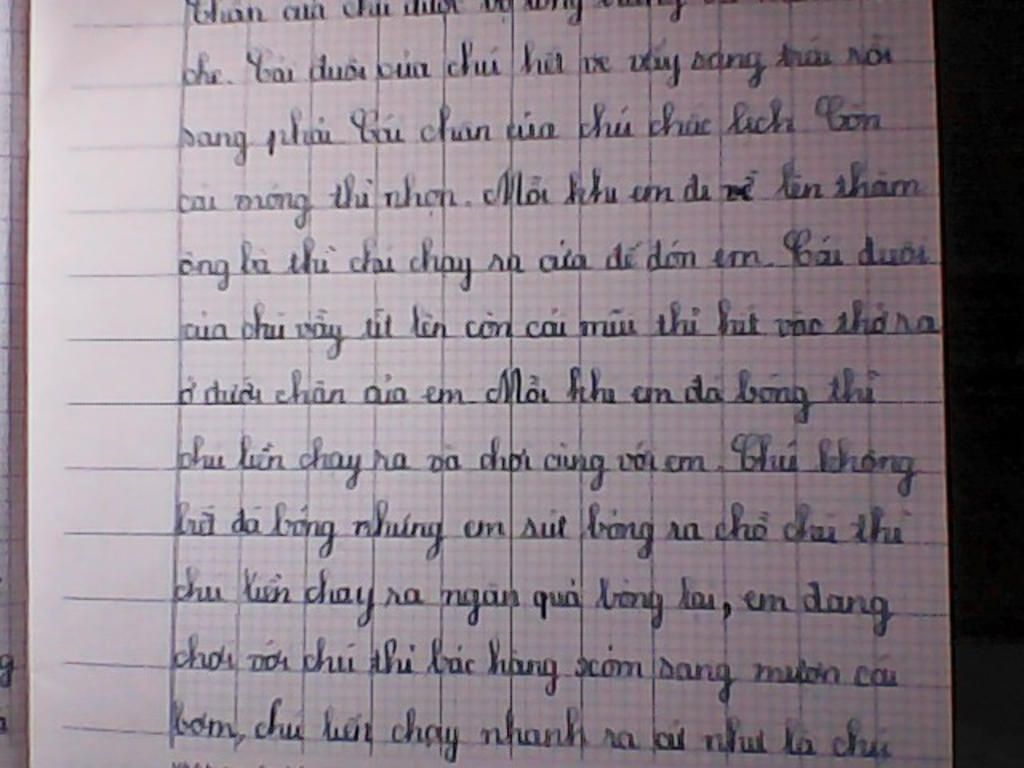 thân của chú được
che. Cái đuôi của chú hết ve vẩy sang trái rồi
sang phải Cái chân của chú chắc lịch Còn
cái móng thì nhọn. Mỗi khi em đi về lên thăm
ông bà thì chú chạy ra cửa để đón em. Cái đuôi
của chú vẫy tít lên còn cái mũi thì hút vào thở ra
ở dưới chân của em Mỗi khi em đá bóng thì
chú liền chạy ra và chơi cùng với em. Chú không
biết đá bóng nhưng em sút bóng ra chỗ chú thì
chú liền chạy ra ngăn quả bóng lại, em đang
chơi với chú thì bác hàng xóm sang mượn cái
bơm, chú liền chạy nhanh ra cứ như là chú